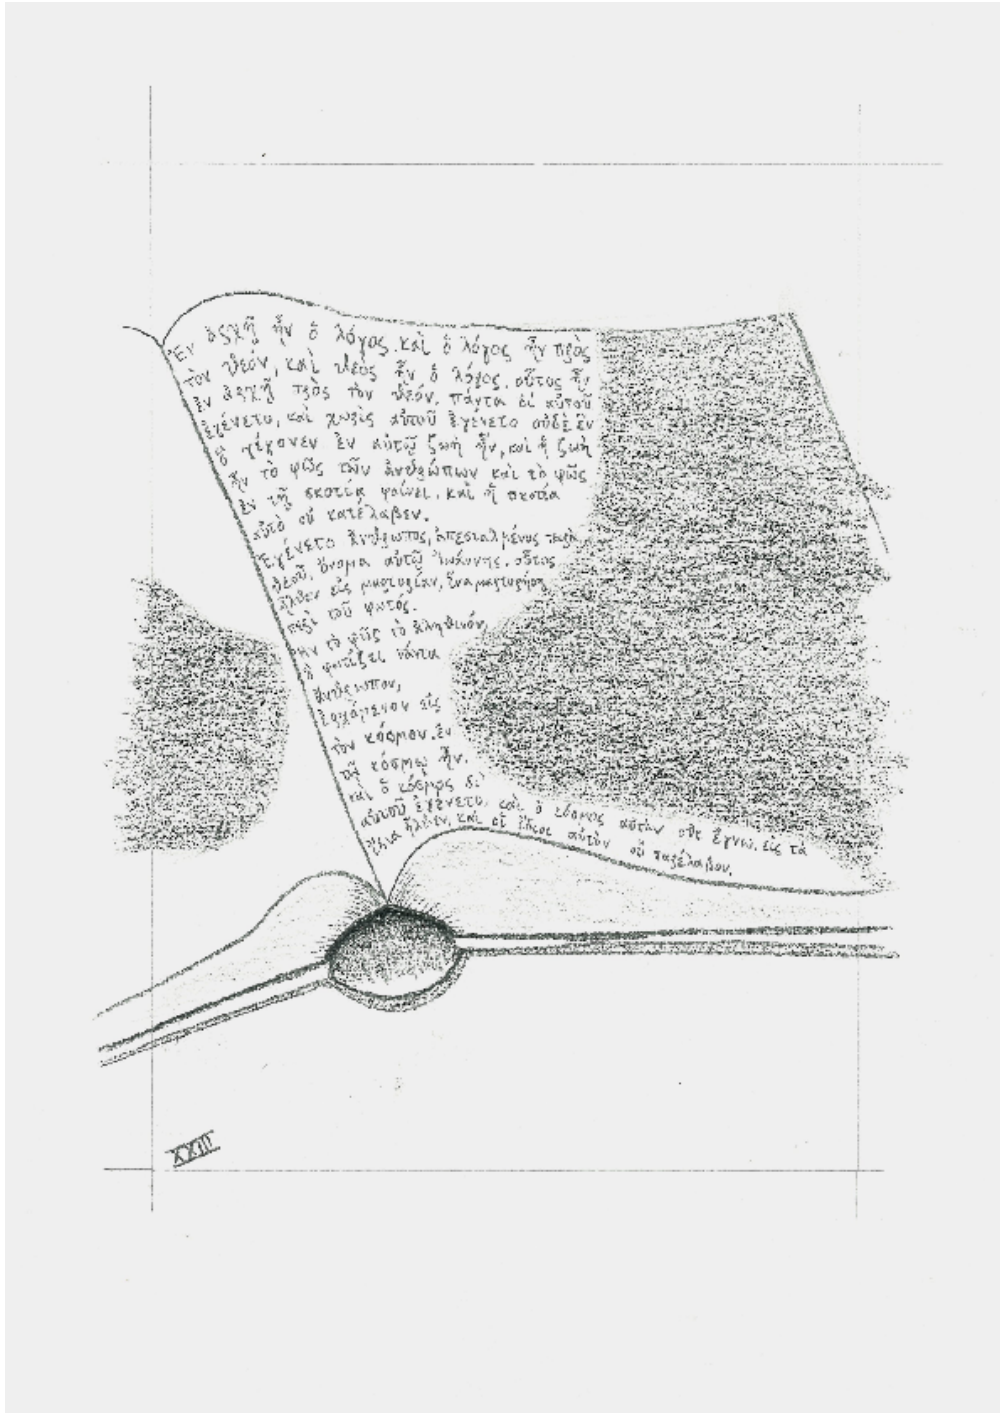 Ἐν ἀρχῇ ἦν ὁ λόγος. καὶ ὁ λόγος ἦν πρὸς
τὸν θεόν, καὶ θεὸς ἦν ὁ λόγος. οὗτος ἦν
ἐν ἀρχῇ πρὸς τὸν θεόν. πάντα αὐτοῦ
ἐγένετο, καὶ χωρὶς αὐτοῦ ἐγένετο οὐδὲ ἓν
ὃ γέγονεν ἐν αὐτῷ ζωὴ ἦν, καὶ ἡ ζωὴ
ἦν τὸ φῶς τῶν ἀνθρώπων καὶ τὸ φῶς
ἐν τῇ σκοτίᾳ φαίνει. καὶ ἡ σκοτία
αὐτὸ οὐ κατέλαβεν.
Ἐγένετο ἄνθρωπος, ἀπεσταλμένος παρὰ
θεοῦ, ὄνομα αὐτῷ Ἰωάννης. οὗτος
ἦλθεν εἰς μαρτυρίαν, ἵνα μαρτυρήσῃ
περὶ τοῦ φωτός.
Ἦν τὸ φῶς τὸ ἀληθινόν,
ὃ φωτίζει πάντα
ἄνθρωπον,
ἐρχόμενον εἰς
τὸν κόσμον. ἐν
τῷ κόσμῳ ἦν.
καὶ ὁ κόσμος δι'
αὐτοῦ ἐγένετο, καὶ ὁ αὐτὸν οὐκ ἔγνω. εἰς τὰ
ἴδια ἦλθεν, καὶ οἱ ἴδιοι αὐτὸν οὐ παρέλαβον.
XXIII